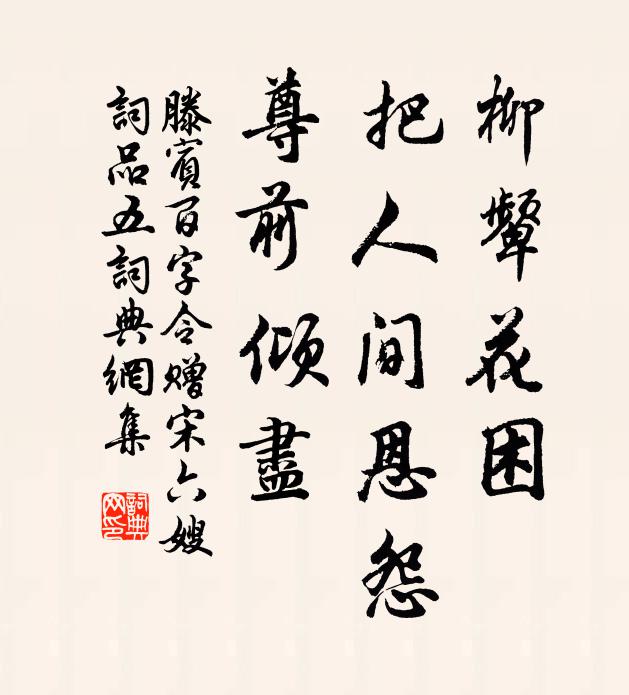 柳顰花困
把人間恩怨
尊前傾盡
滕賓百字令贈宋六嫂
詞品五詞典網集
詞典
网印